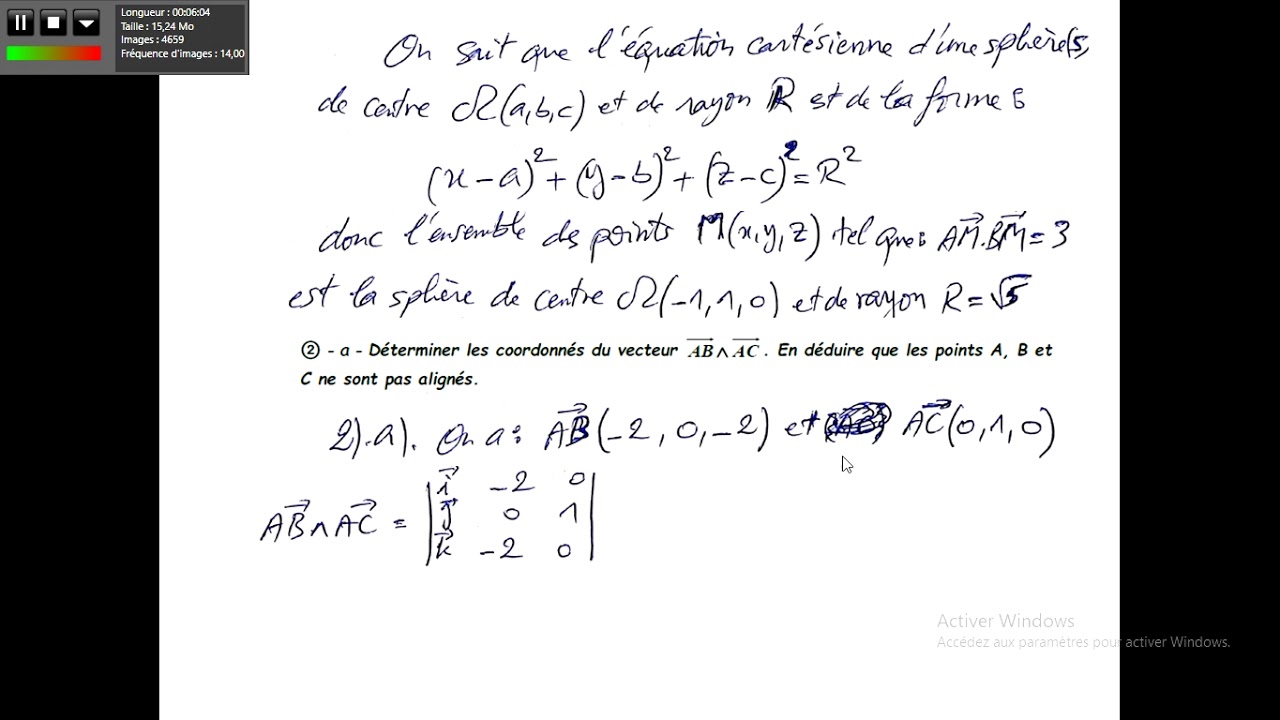 Longueur : 00:06:04
Taille : 15,24 Mo
Images : 4659
Fréquence d'images : 14,00
On sait que l'équation cartésienne d'une sphère(S)
de centre Ω(a,b,c) et de rayon R est de la forme :
(x-a)²+(y-b)²+(z-c)²=R²
donc l'ensemble des points M(x,y,z) tel que: AM→.BM→=3
est la sphère de centre Ω(-1,1,0) et de rayon R=√5
② - a - Déterminer les coordonnés du vecteur AB→∧AC→. En déduire que les points A, B et
C ne sont pas alignés.
2).a). On a: AB→(-2,0,-2) et AC→(0,1,0)
AB→∧AC→ = |i→ -2 0|
|j→ 0 1|
|k→ -2 0|
Activer Windows
Accédez aux paramètres pour activer Windows.